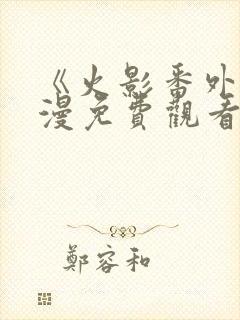 《火影番外
漫免費觀看
鄭容和